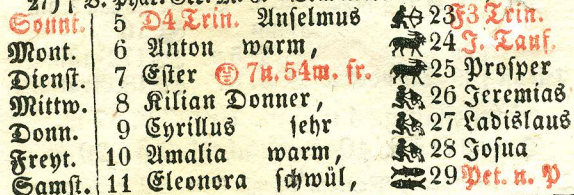 Sonnt. 5 D4 Trin. Anselmus 23 F3 Trin.
Mont. 6 Anton warm, 24 J. Tauf.
Dienſt. 7 Eſter 7u. 54m. fr. 25 Proſper
Mittw. 8 Kilian Donner, 26 Jeremias
Donn. 9 Cyrillus ſehr 27 Ladislaus
Freyt. 10 Amalia warm, 28 Joſua
Samſt. 11 Eleonora ſchwül, 29 Pet. u. P